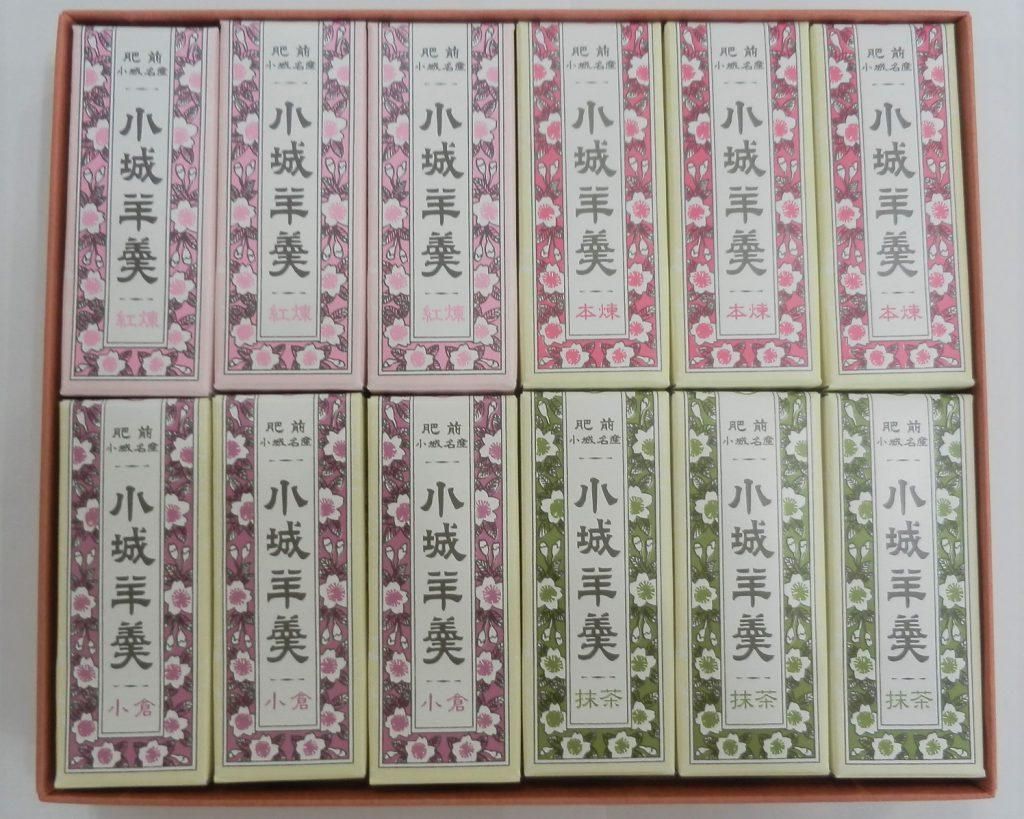 肥前
小城名産
小城羊羹
紅煉
肥前
小城名産
小城羊羹
紅煉
肥前
小城名産
小城羊羹
紅煉
肥前
小城名産
小城羊羹
本煉
肥前
小城名産
小城羊羹
本煉
肥前
小城名産
小城羊羹
本煉
肥前
小城名産
小城羊羹
小倉
肥前
小城名産
小城羊羹
小倉
肥前
小城名産
小城羊羹
小倉
肥前
小城名産
小城羊羹
抹茶
肥前
小城名産
小城羊羹
抹茶
肥前
小城名産
小城羊羹
抹茶